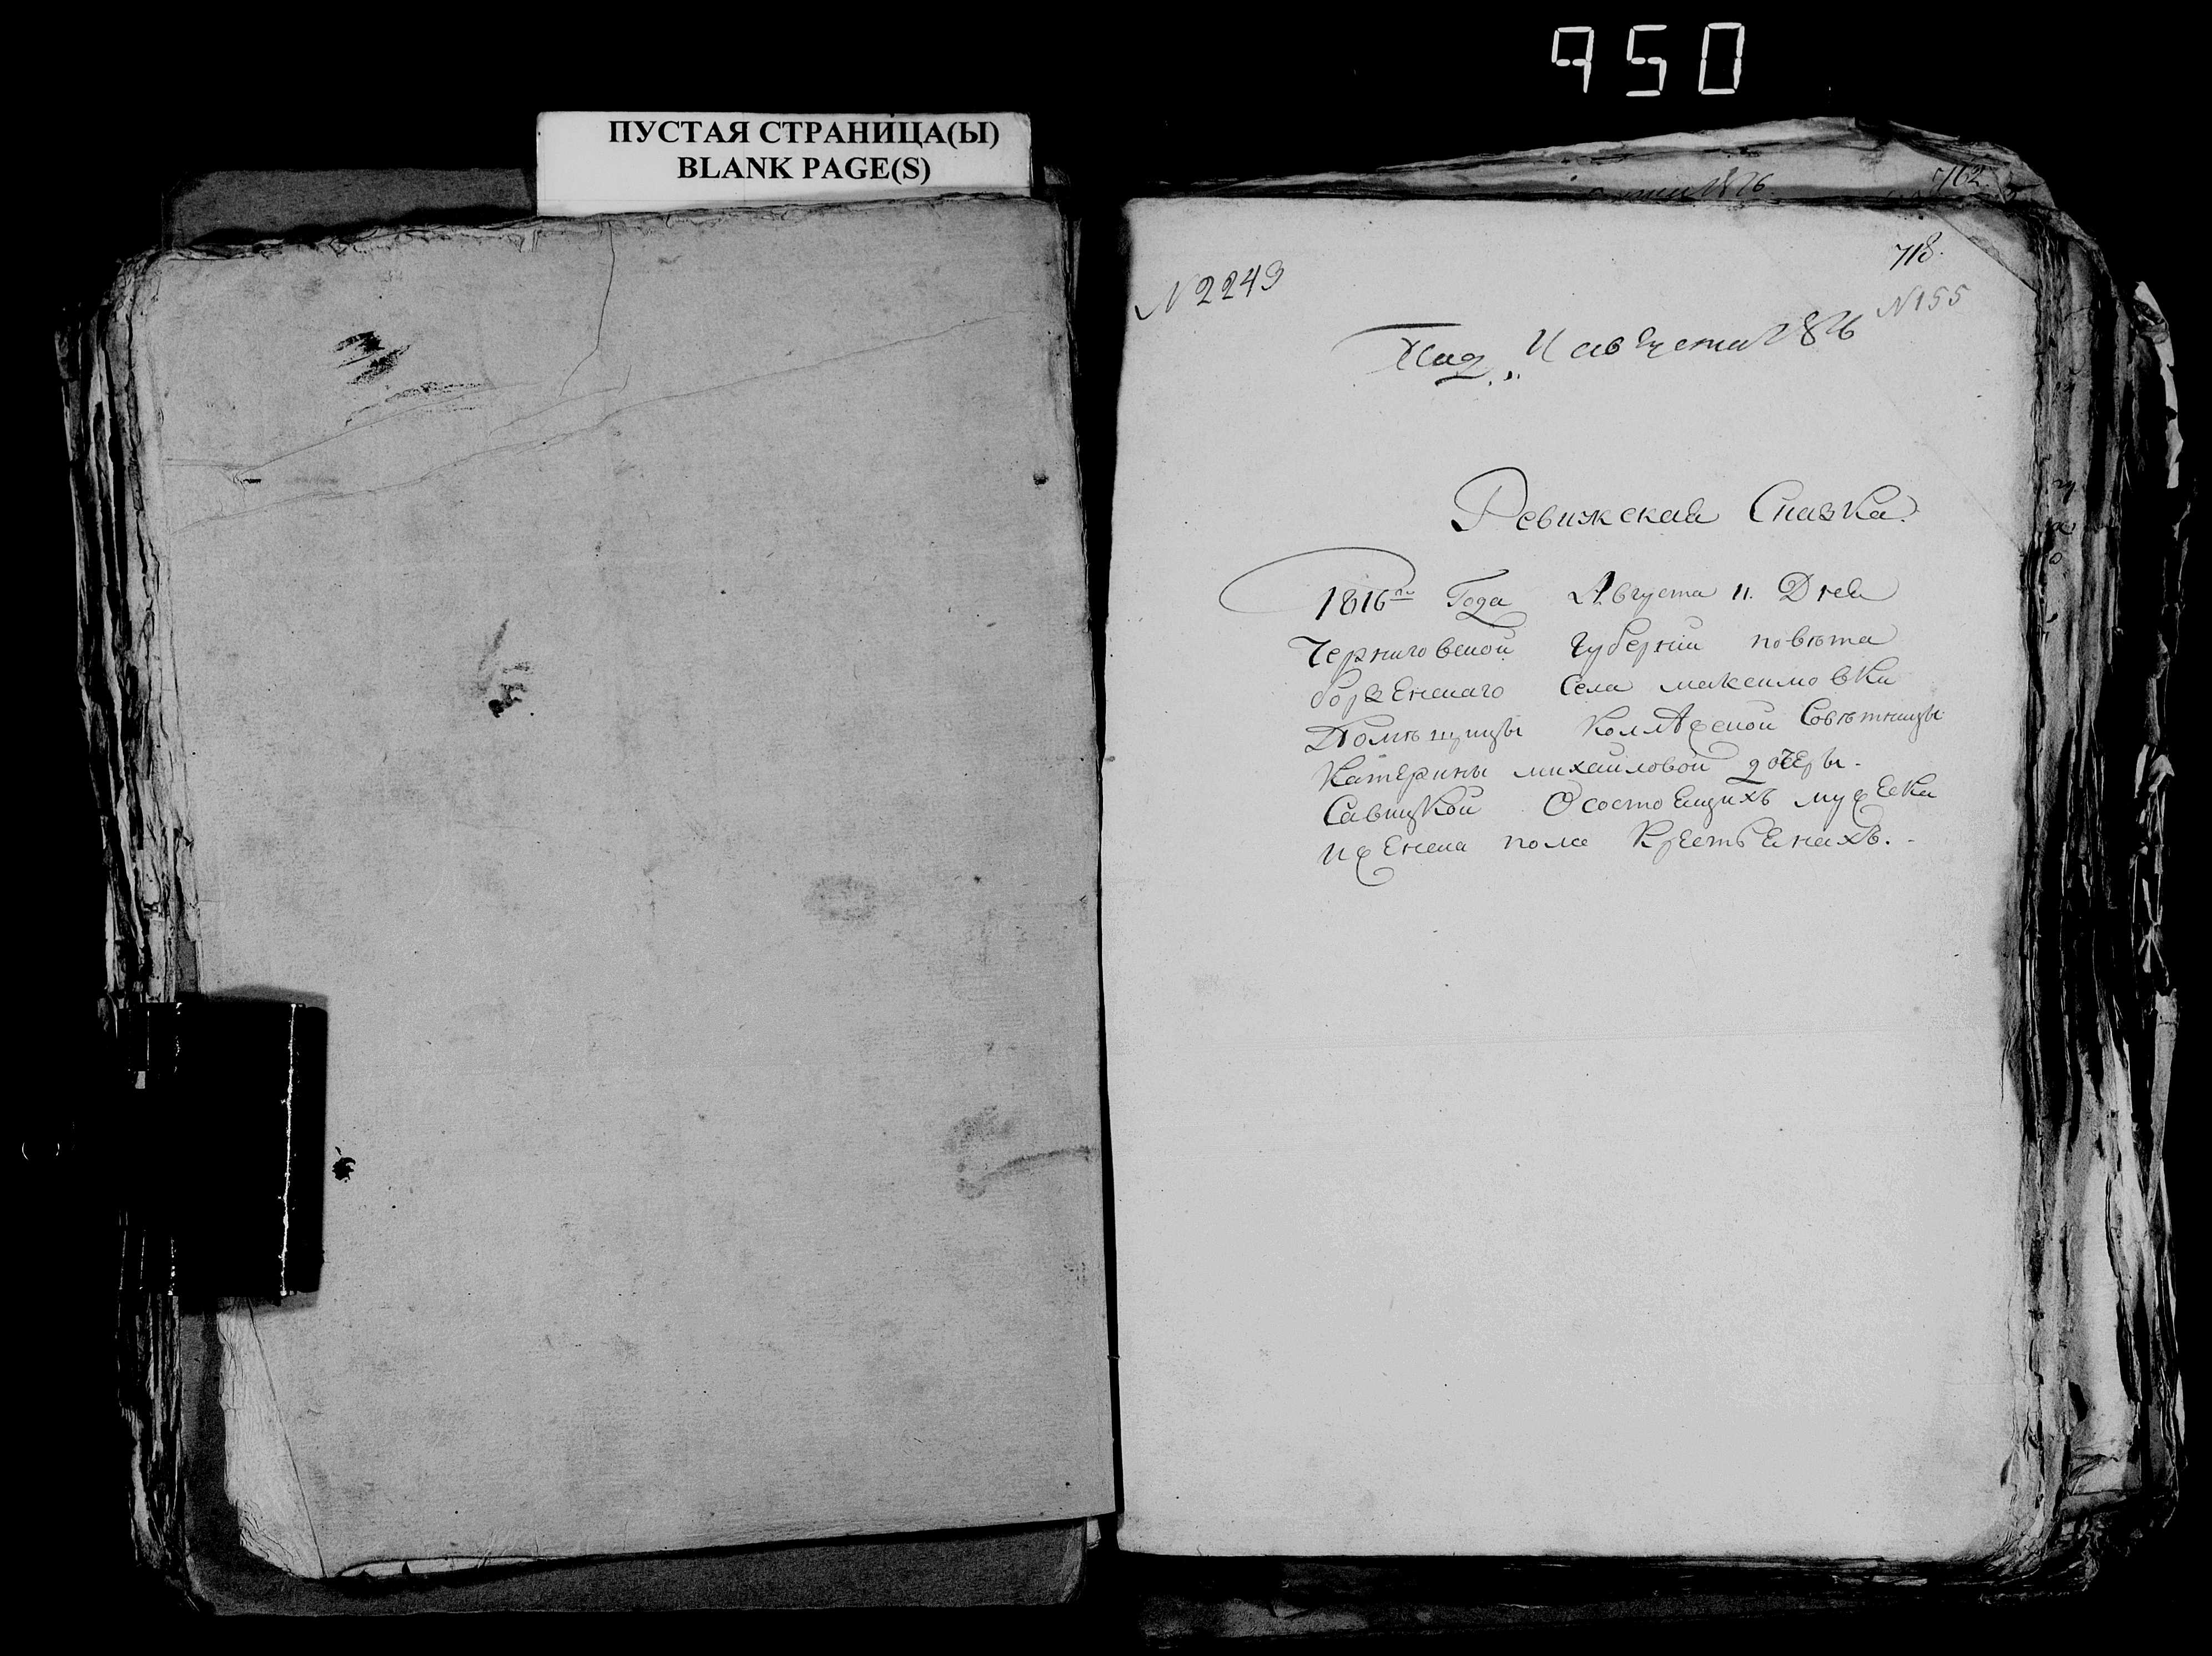 950
ПУСТАЯ СТРАНИЦА(Ы)
BLANK PAGE(S)
762
718.
N 2249
N 155
Под. 11 августа 1816
Ревижская Сказка.
1816го Года Августа 11. Дня
Черниговской Губернии повѣта
борзенскаго Села максимовки
Помѣщицы Коллѣжской Совѣтницы
Катерины михайловой дочеры.
Савицкой О состоещихъ мужеска
и женска пола Крестьенахъ.